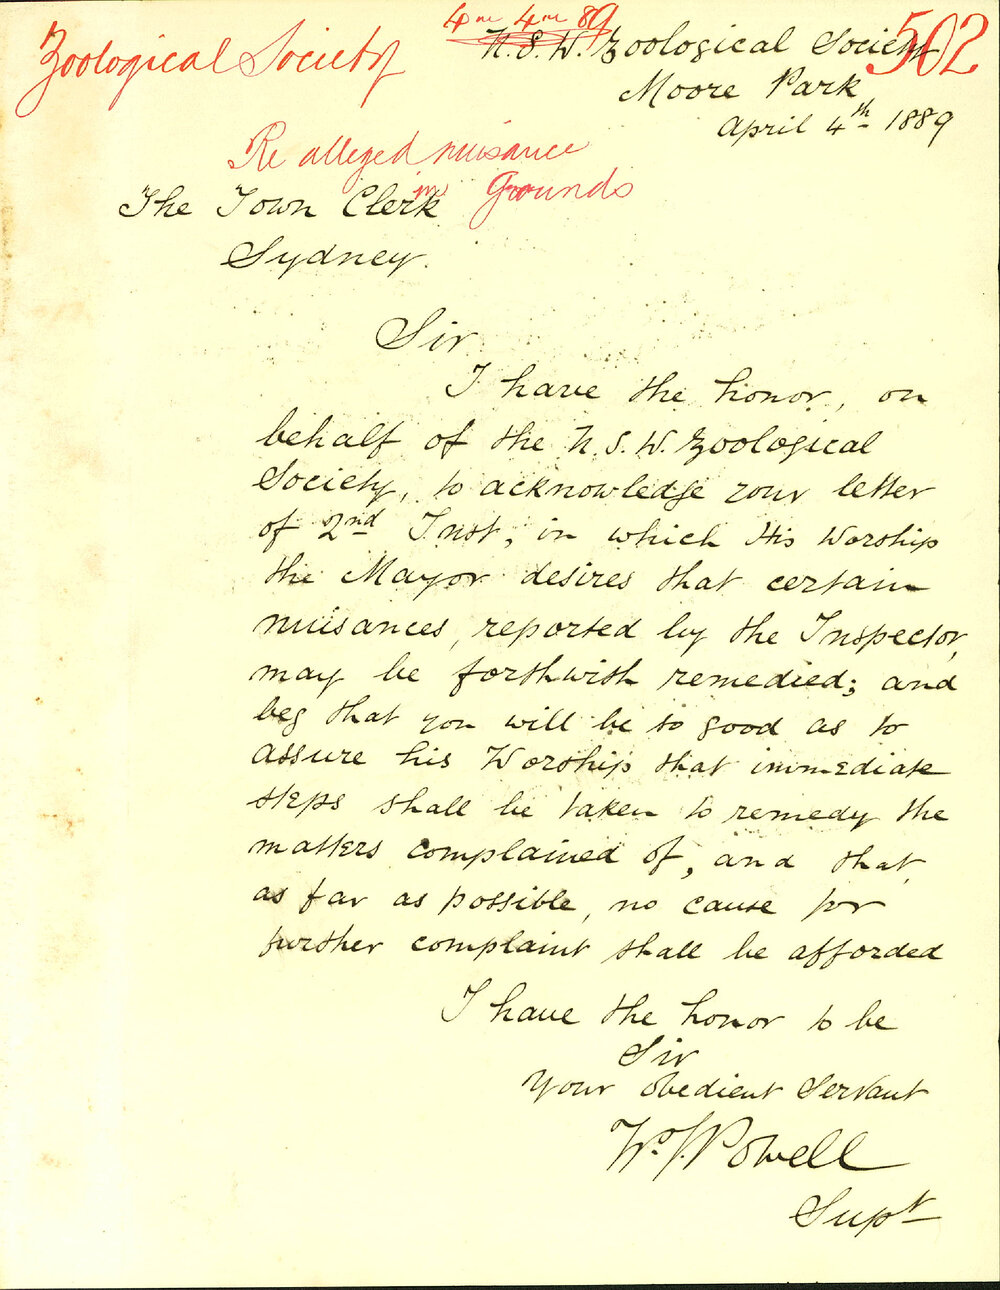 4 4 89
Zoological Society
N.S.W. Zoological Society
502
Moore Park
April 4th 1889
Re alleged nuisance
in Grounds
The Town Clerk
Sydney.
Sir
I have the honor, on
behalf of the N.S.W. Zoological
Society, to acknowledge your letter
of 2nd Inst, in which His Worship
the Mayor desires that certain
nuisances, reported by the Inspector,
may be forthwith remedied; and
beg that you will be so good as to
assure his Worship that immediate
steps shall be taken to remedy the
matters complained of, and that,
as far as possible, no cause for
further complaint shall be afforded
I have the honor to be
Sir
Your obedient Servant
Wm. J. Powell
Supt